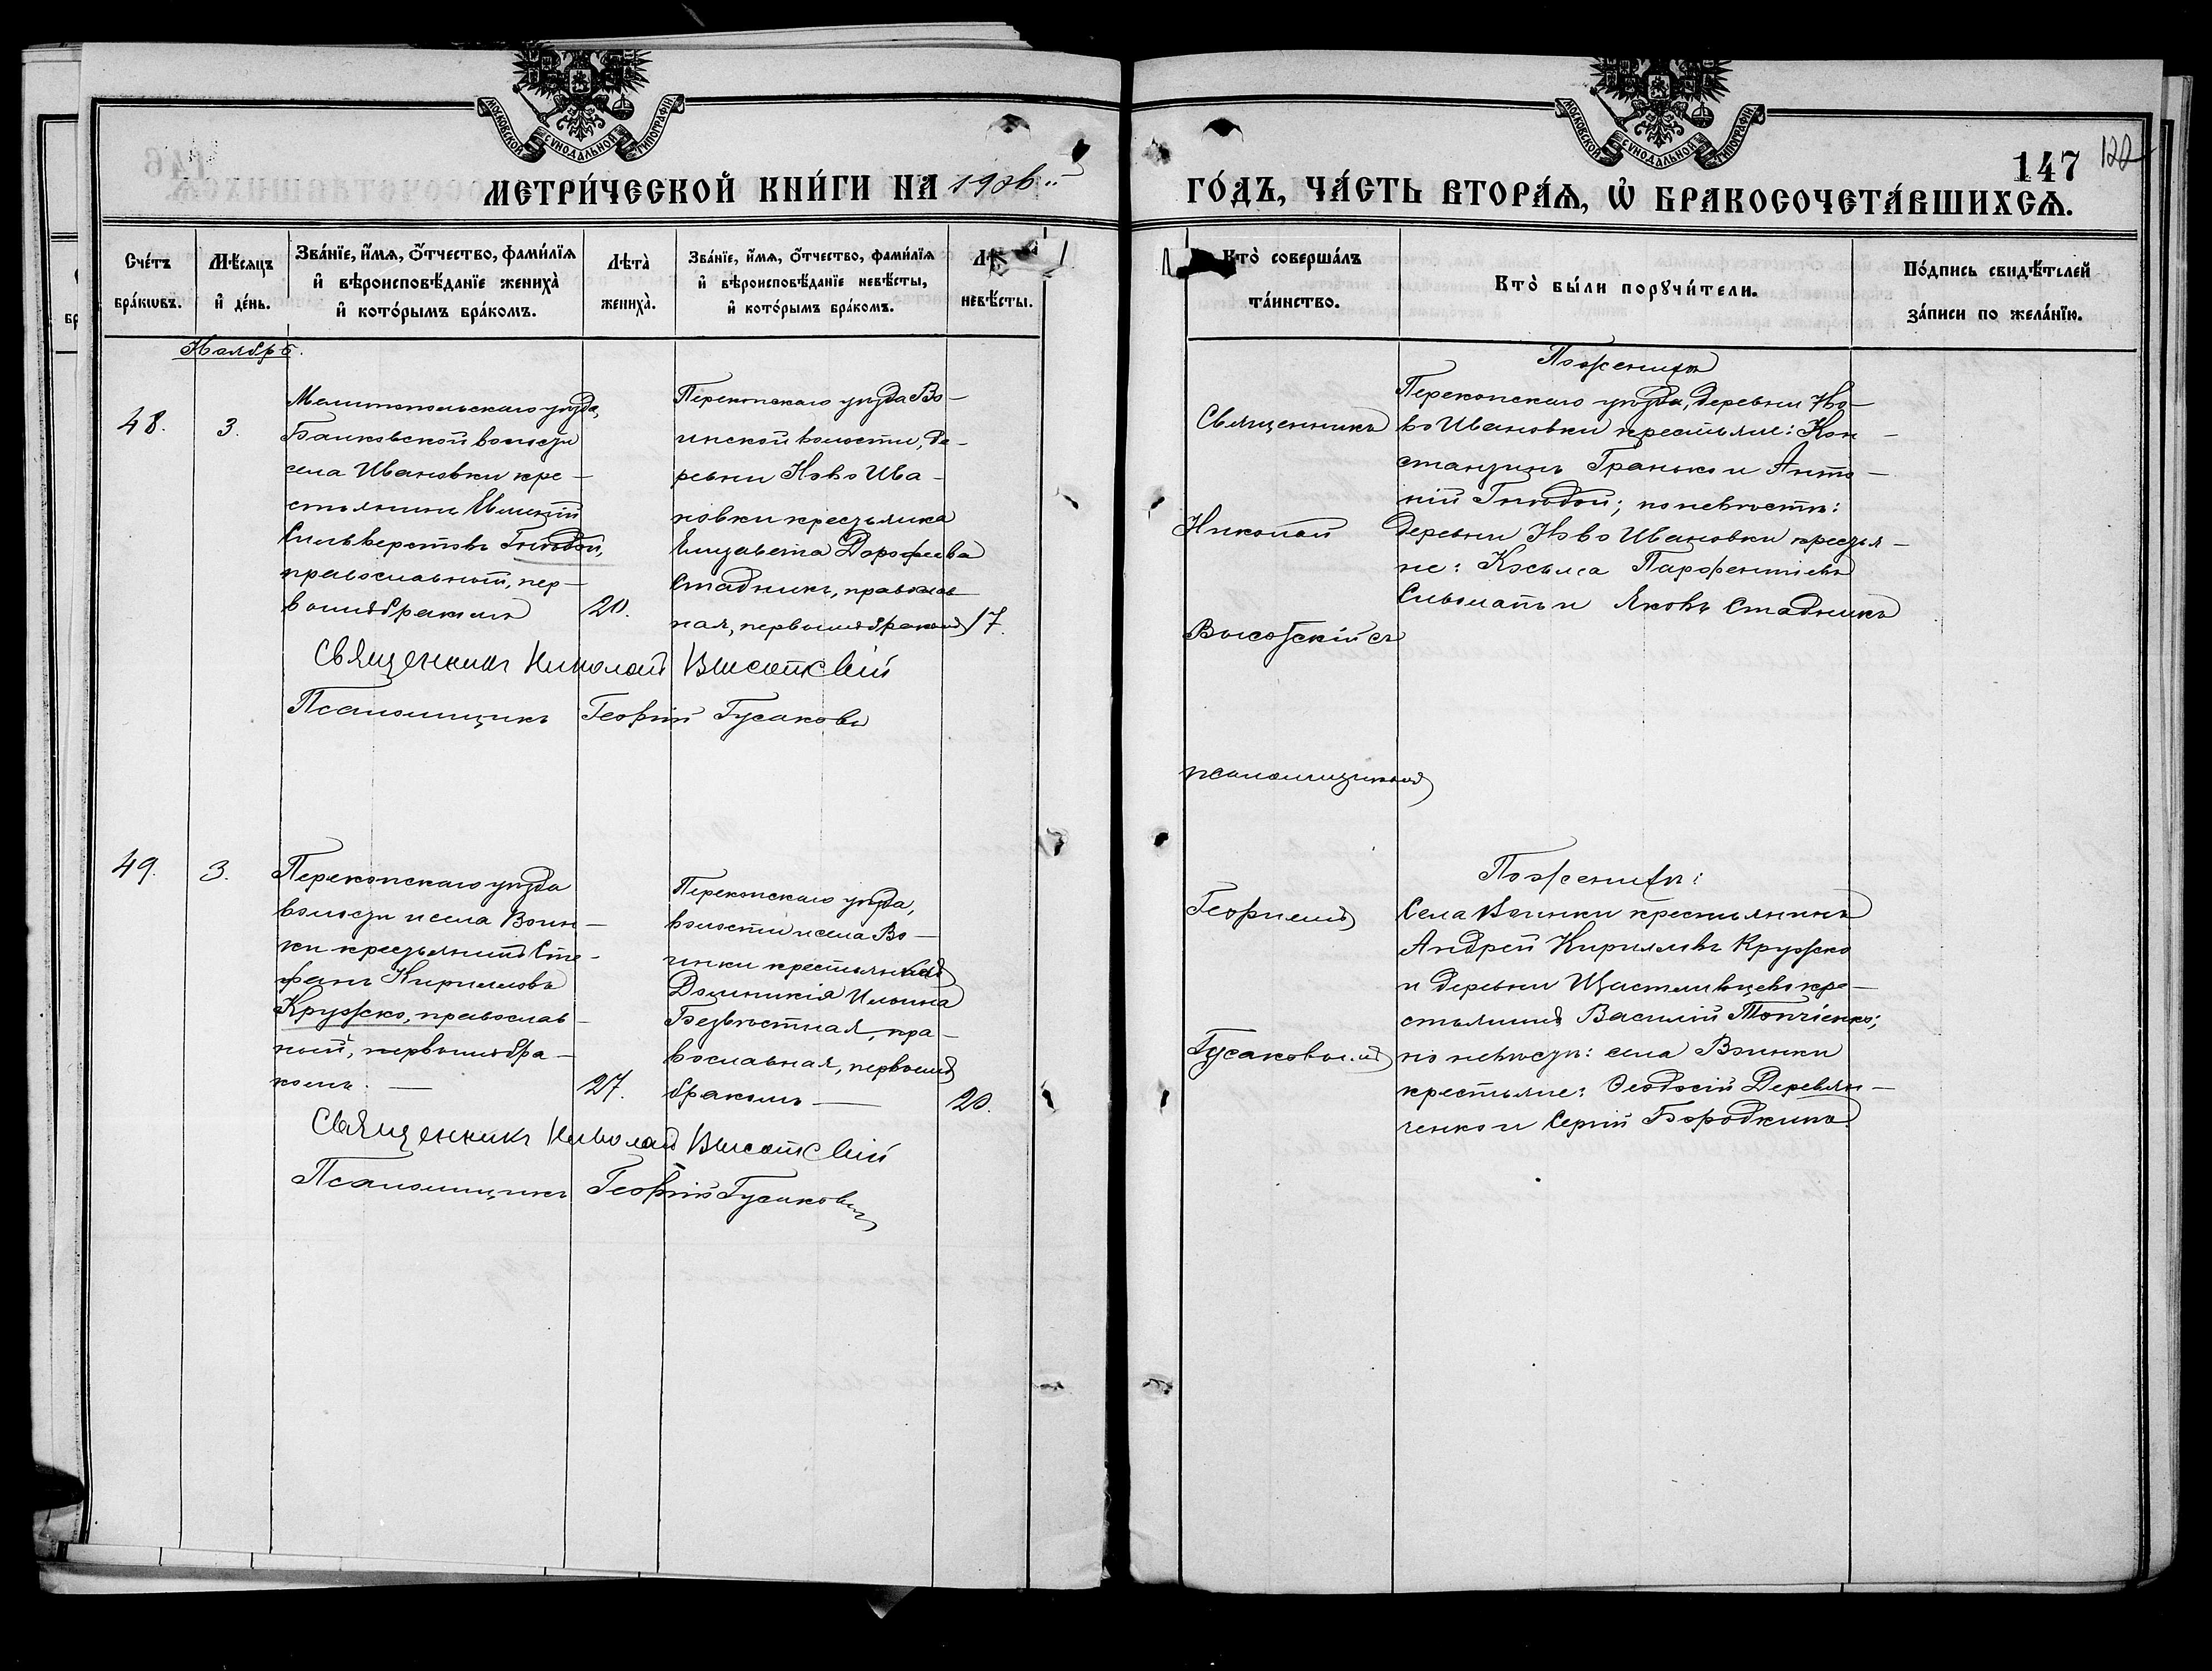 МОСКОВСКОЙ СУНОДАЛЬНОЙ ТИПОГРАФІИ
МЕТРИ́ЧЕСКОЙ КНИ́ГИ НА 1906
Сче́тъ бра́кѡвъ.
Мѣ́сяцъ и҆ де́нь.
Зва́нїе, и҆́мѧ, ѻ҆́тчество, фами́лїѧ
и҆ вѣроисповѣ́данїе жениха̀
и҆ кото́рымъ бра́комъ.
Лѣта̀ жениха̀.
Зва́нїе, и҆́мѧ, ѻ҆́тчество, фами́лїѧ
и҆ вѣроисповѣ́данїе невѣ́сты,
и҆ кото́рымъ бра́комъ.
невѣ́сты.
Ноябрь.
48.
3.
Мелитопольскаго уѣзда,
волости
села Ивановки кре-
стьянинъ Евгеній
Сильверстовъ Гнидой,
православный, пер-
вымъ бракомъ
20.
Перекопскаго уѣзда Во-
инской волости, де-
ревни Ново Ива-
новки крестьянка
Елизавета Дорофеева
Стадникъ, православ
ная, первымъ бракомъ
17.
Священникъ Николай Высотскій
Псаломщикъ Георгій Гусаковъ
49.
3.
Перекопскаго уѣзда
волости и села Воин-
ки крестьянинъ Сте-
фанъ Кирилловъ
Кружко, православ-
ный, первымъ бра-
комъ. —
27.
Перекопскаго уѣзда,
волости и села Во-
инки крестьянка
Домникія Ильина
Безвѣстная, пра-
вославная, первымъ
бракомъ —
20.
Священникъ Николай Высотскій
Псаломщикъ Георгій Гусаковъ
МОСКОВСКОЙ СУНОДАЛЬНОЙ ТИПОГРАФІИ
147
122
ГО́ДЪ, ЧА́СТЬ ВТОРА́Ѧ, Ѡ҆ БРАКОСОЧЕТА́ВШИХСѦ.
Кто̀ соверша́лъ
та́инство.
Кто̀ бы́ли порꙋчи́тели.
По́дпись свидѣ́телей
за́писи по жела́нїю.
Священникъ
Николай
Высотскій съ
псаломщикомъ
Георгіемъ
Гусаковымъ
По женихѣ
Перекопскаго уѣзда, деревни Но-
во Ивановки крестьяне: Кон-
стантинъ Гранько и Анто-
ній Гнидой; по невѣстѣ:
деревни Ново Ивановки крестья-
не: Косьма Парфентіевъ
Сивомапъ и Яковъ Стадникъ
По женихѣ:
Села Воинки крестьянинъ
Андрей Кирилловъ Кружко
и деревни Щастливцево кре-
стьянинъ Василій Топчіенко;
по невѣстѣ: села Воинки
крестьяне: Ѳеодосій Деревян-
ченко и Сергій Бородкинъ